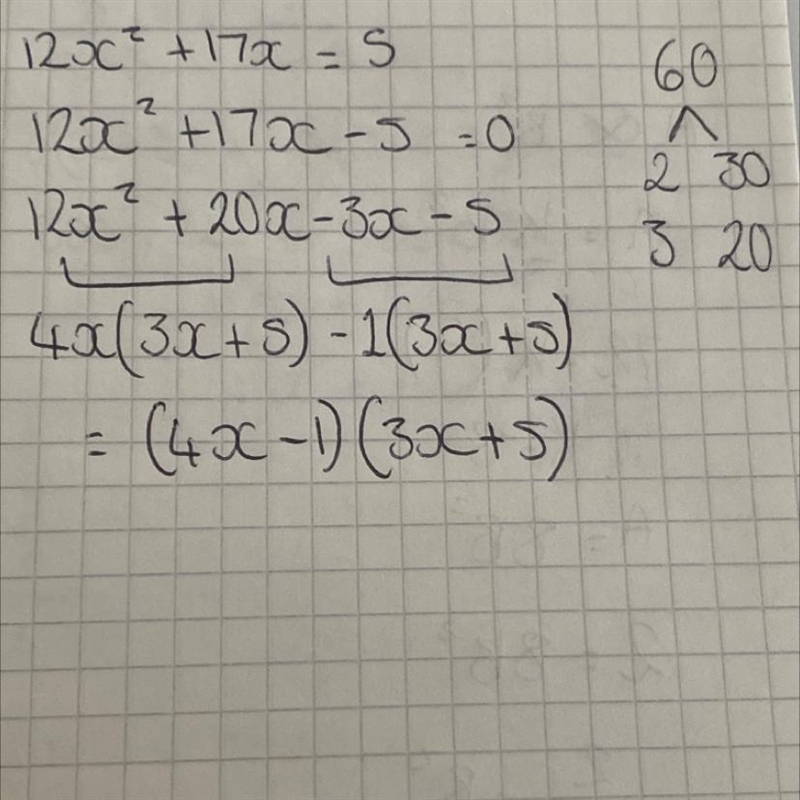 12x² +17x = 5
12x² +17x - 5 =0
12x² + 20x - 3x - 5
4x(3x+5) - 1(3x+5)
= (4x - 1)(3x+5)
60
2 30
3 20